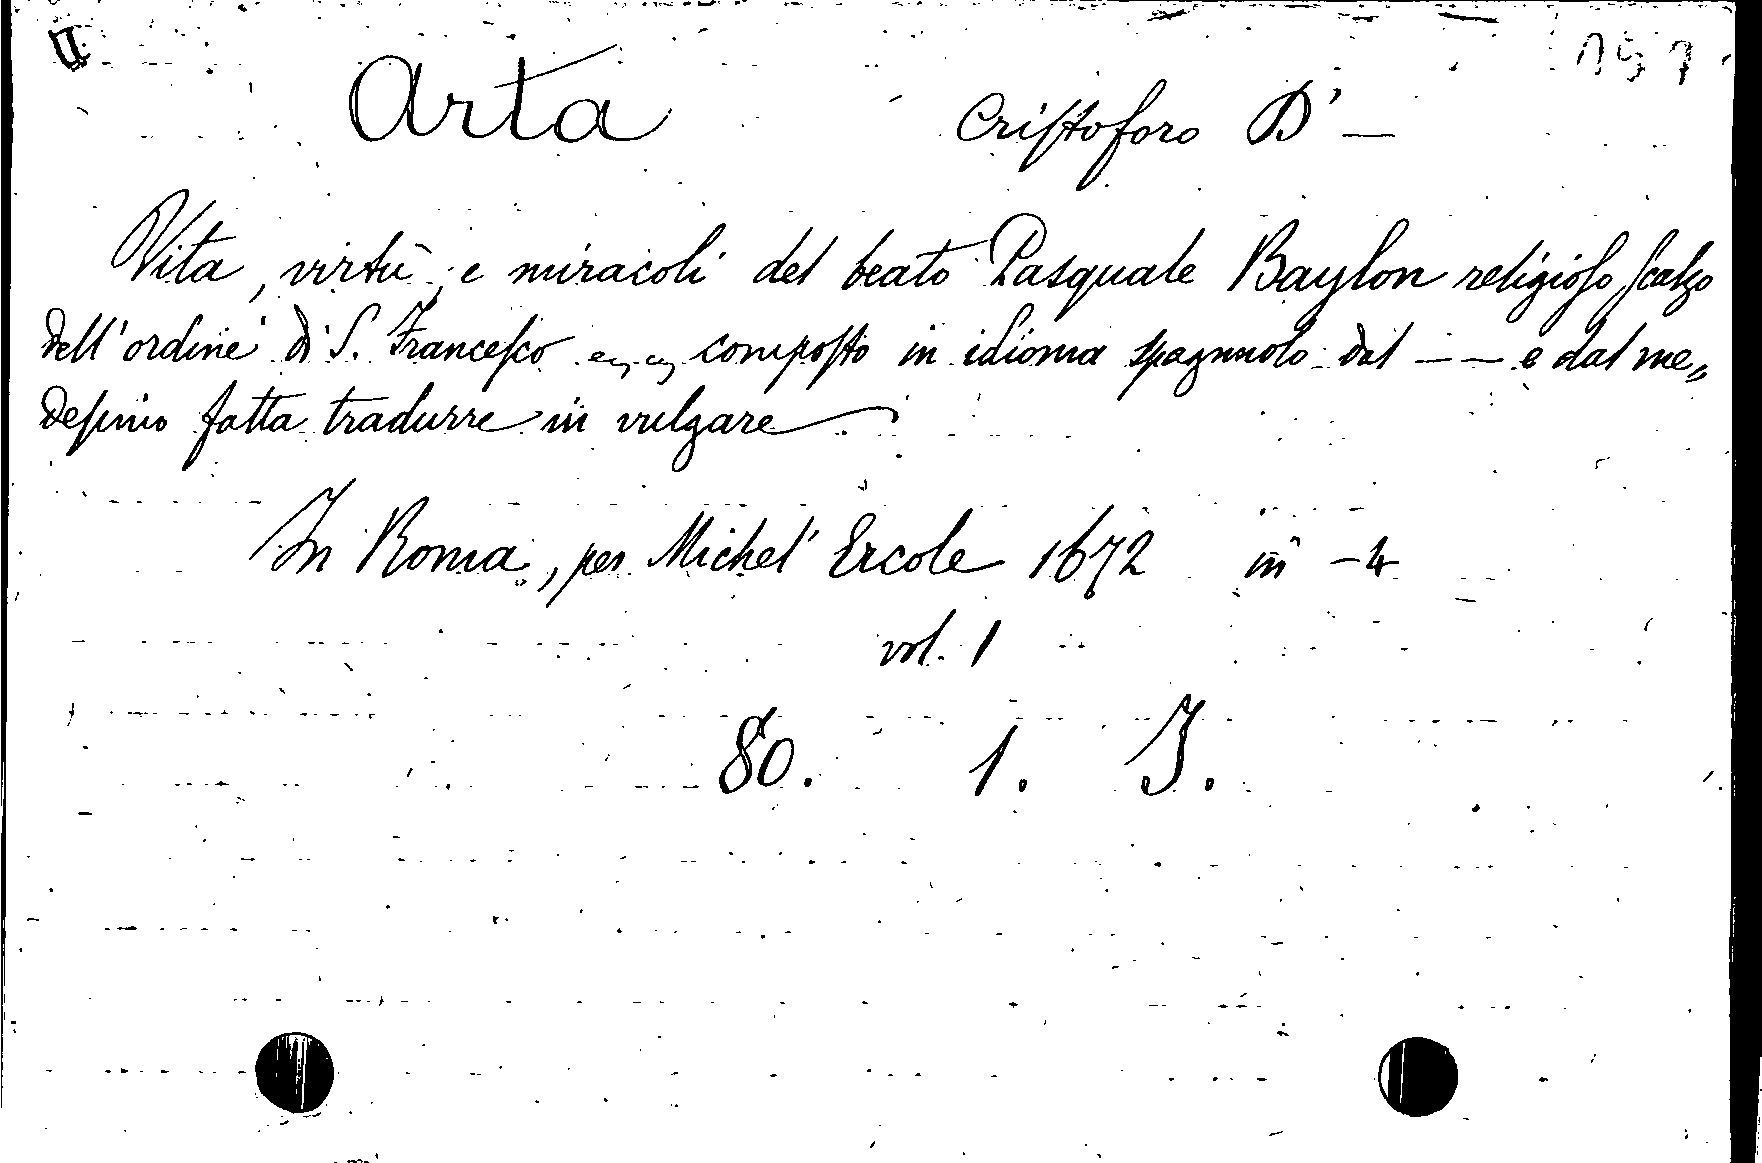 Arta Cristoforo D' —
Vita, virtù, e miracoli del beato Pasquale Baylon religioso scalzo
dell'ordine di S. Francesco composto in idioma spagnuolo dal — — e dal me„
desimo fatta tradurre in vulgare
In Roma, per Michel' Ercole 1672 in -4
vol. 1
80. 1. J.